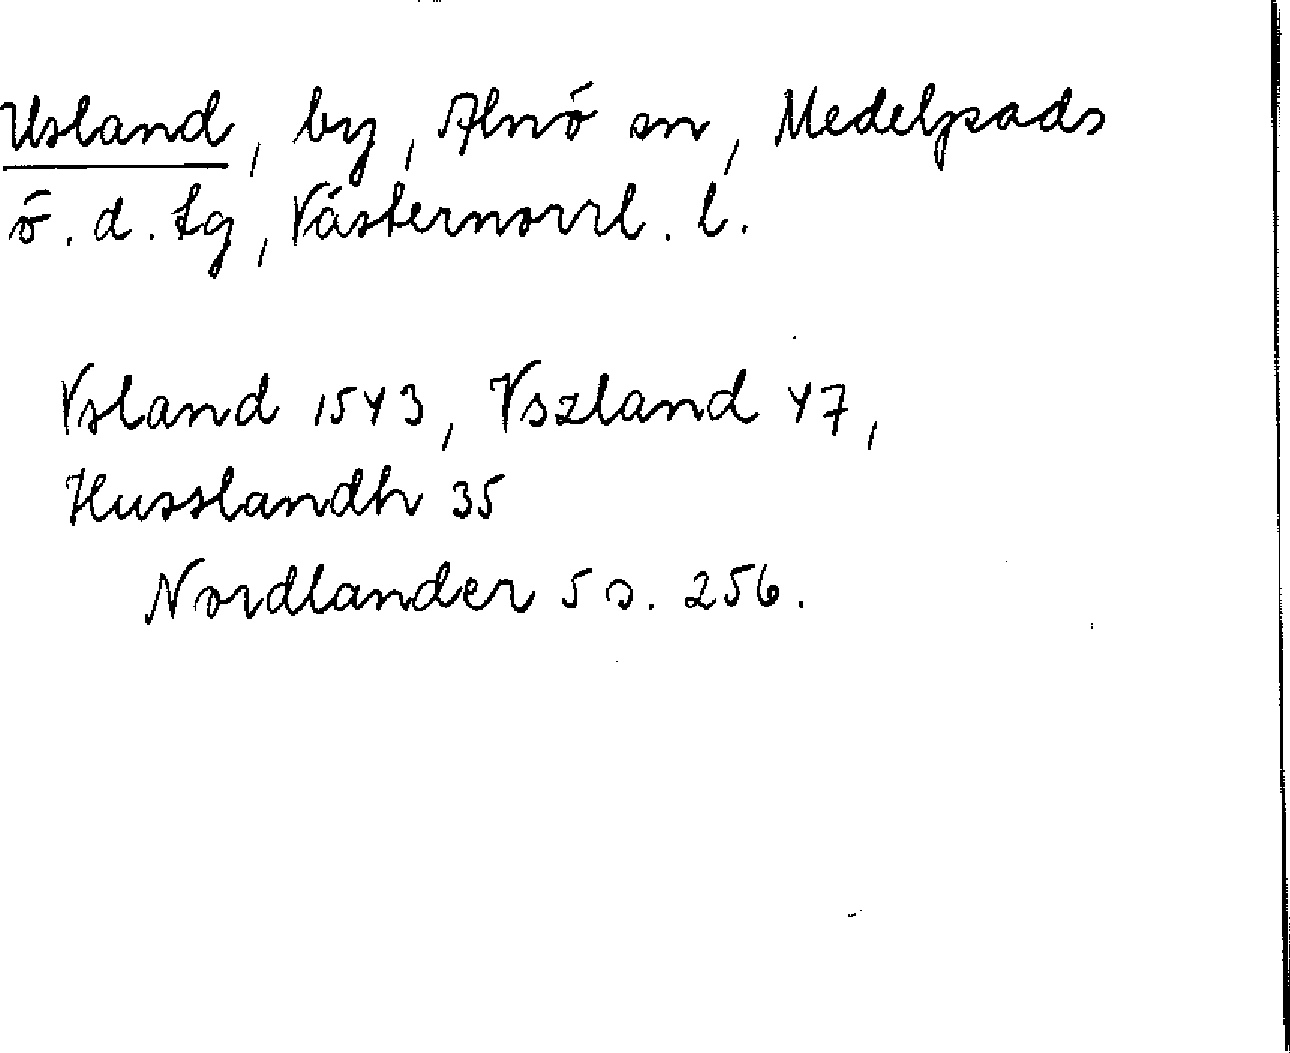 Usland, by, Alnö sn, Medelpads
ö. d. tg, Västernorrl. l.
Vsland 1543, Vszland 47,
Husslandh 35
Nordlander 5 s. 256.